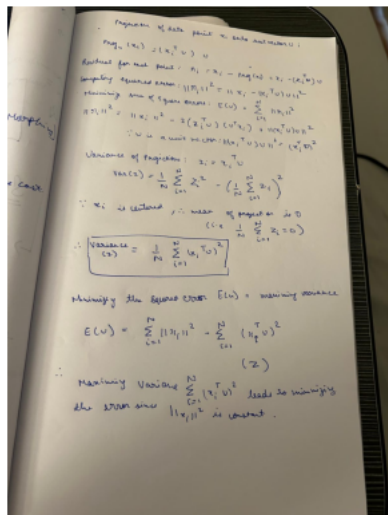 Projection of data point xi onto unit vector U :
Proju (xi) = (xiᵀU) U
Residual for each point: ri = xi - Proj(xi) = xi - (xiᵀU) U
Computing squared error: ||ri||² = ||xi - (xiᵀU)U||²
Minimizing sum of square errors: E(U) = Σ ||ri||²
||ri||² = ||xi||² - 2(xiᵀU)(Uᵀxi) + ||(xiᵀU)U||²
∵ U is a unit vector: ||(xiᵀU)U||² = (xiᵀU)²
Variance of Projection: zi = xiᵀU
Var(z) = 1/N Σ zi² - (1/N Σ zi)²
∵ xi is centered, ∴ mean of projection is 0
(i.e 1/N Σ zi = 0)
∴ Variance (z) = 1/N Σ (xiᵀU)²
Minimizing the squared error E(U) = maximizing variance
E(U) = Σ ||xi||² - Σ (xiᵀU)²
(Z)
∴ Maximizing Variance Σ (xiᵀU)² leads to minimizing
the error since ||xi||² is constant.
Morphing
cost